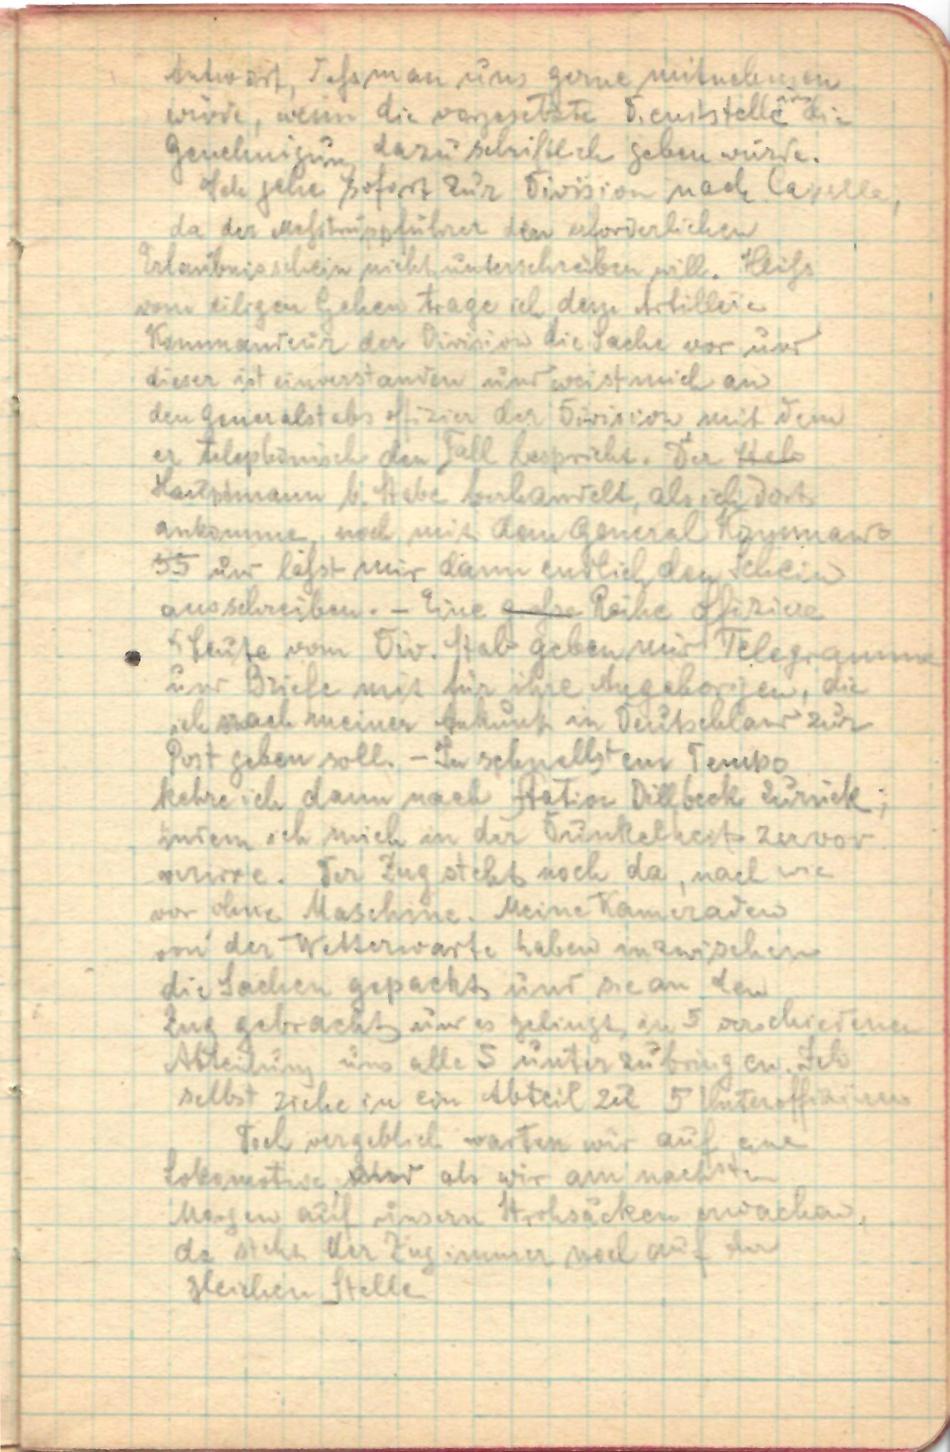 Antwort, dass man uns gerne mitnehmen
würde, wenn die vorgesetzte Dienststelle uns die
Genehmigung dazu schriftlich geben würde.
Ich gehe sofort zur Division nach Capelle,
da der Messtruppführer den erforderlichen
Erlaubnisschein nicht unterschreiben will. Heiss
vom eiligen Gehen trage ich dem Artillerie
Kommandeur der Division die Sache vor und
dieser ist einverstanden und weist mich an
den Generalstabsoffizier der Division mit dem
er telephonisch den Fall bespricht. Der
Hauptmann b. Stabe verhandelt, als ich dort
ankomme, noch mit dem General Kommando
55 und lässt mir dann endlich den Schein
ausschreiben. – Eine grosse Reihe Offiziere
Leute vom Div. Stab geben mir Telegramme
und Briefe mit für ihre Angehörigen, die
ich nach meiner Ankunft in Deutschland zur
Post geben soll. – In schnellstem Tempo
kehre ich dann nach Station Dillbeck zurück;
indem ich mich in der Dunkelheit zuvor
verirre. Der Zug steht noch da, nach wie
vor ohne Maschine. Meine Kameraden
von der Wetterwarte haben inzwischen
die Sachen gepackt und sie an den
Zug gebracht und es gelingt, in 5 verschiedenen
Abteilung uns alle 5 unterzubringen. Ich
selbst ziehe in ein Abteil zu 5 Unteroffizieren
Doch vergeblich warten wir auf eine
Lokomotive, und als wir am nächsten
Morgen auf unsern Strohsäcken erwachen,
da steht der Zug immer noch auf der
gleichen Stelle